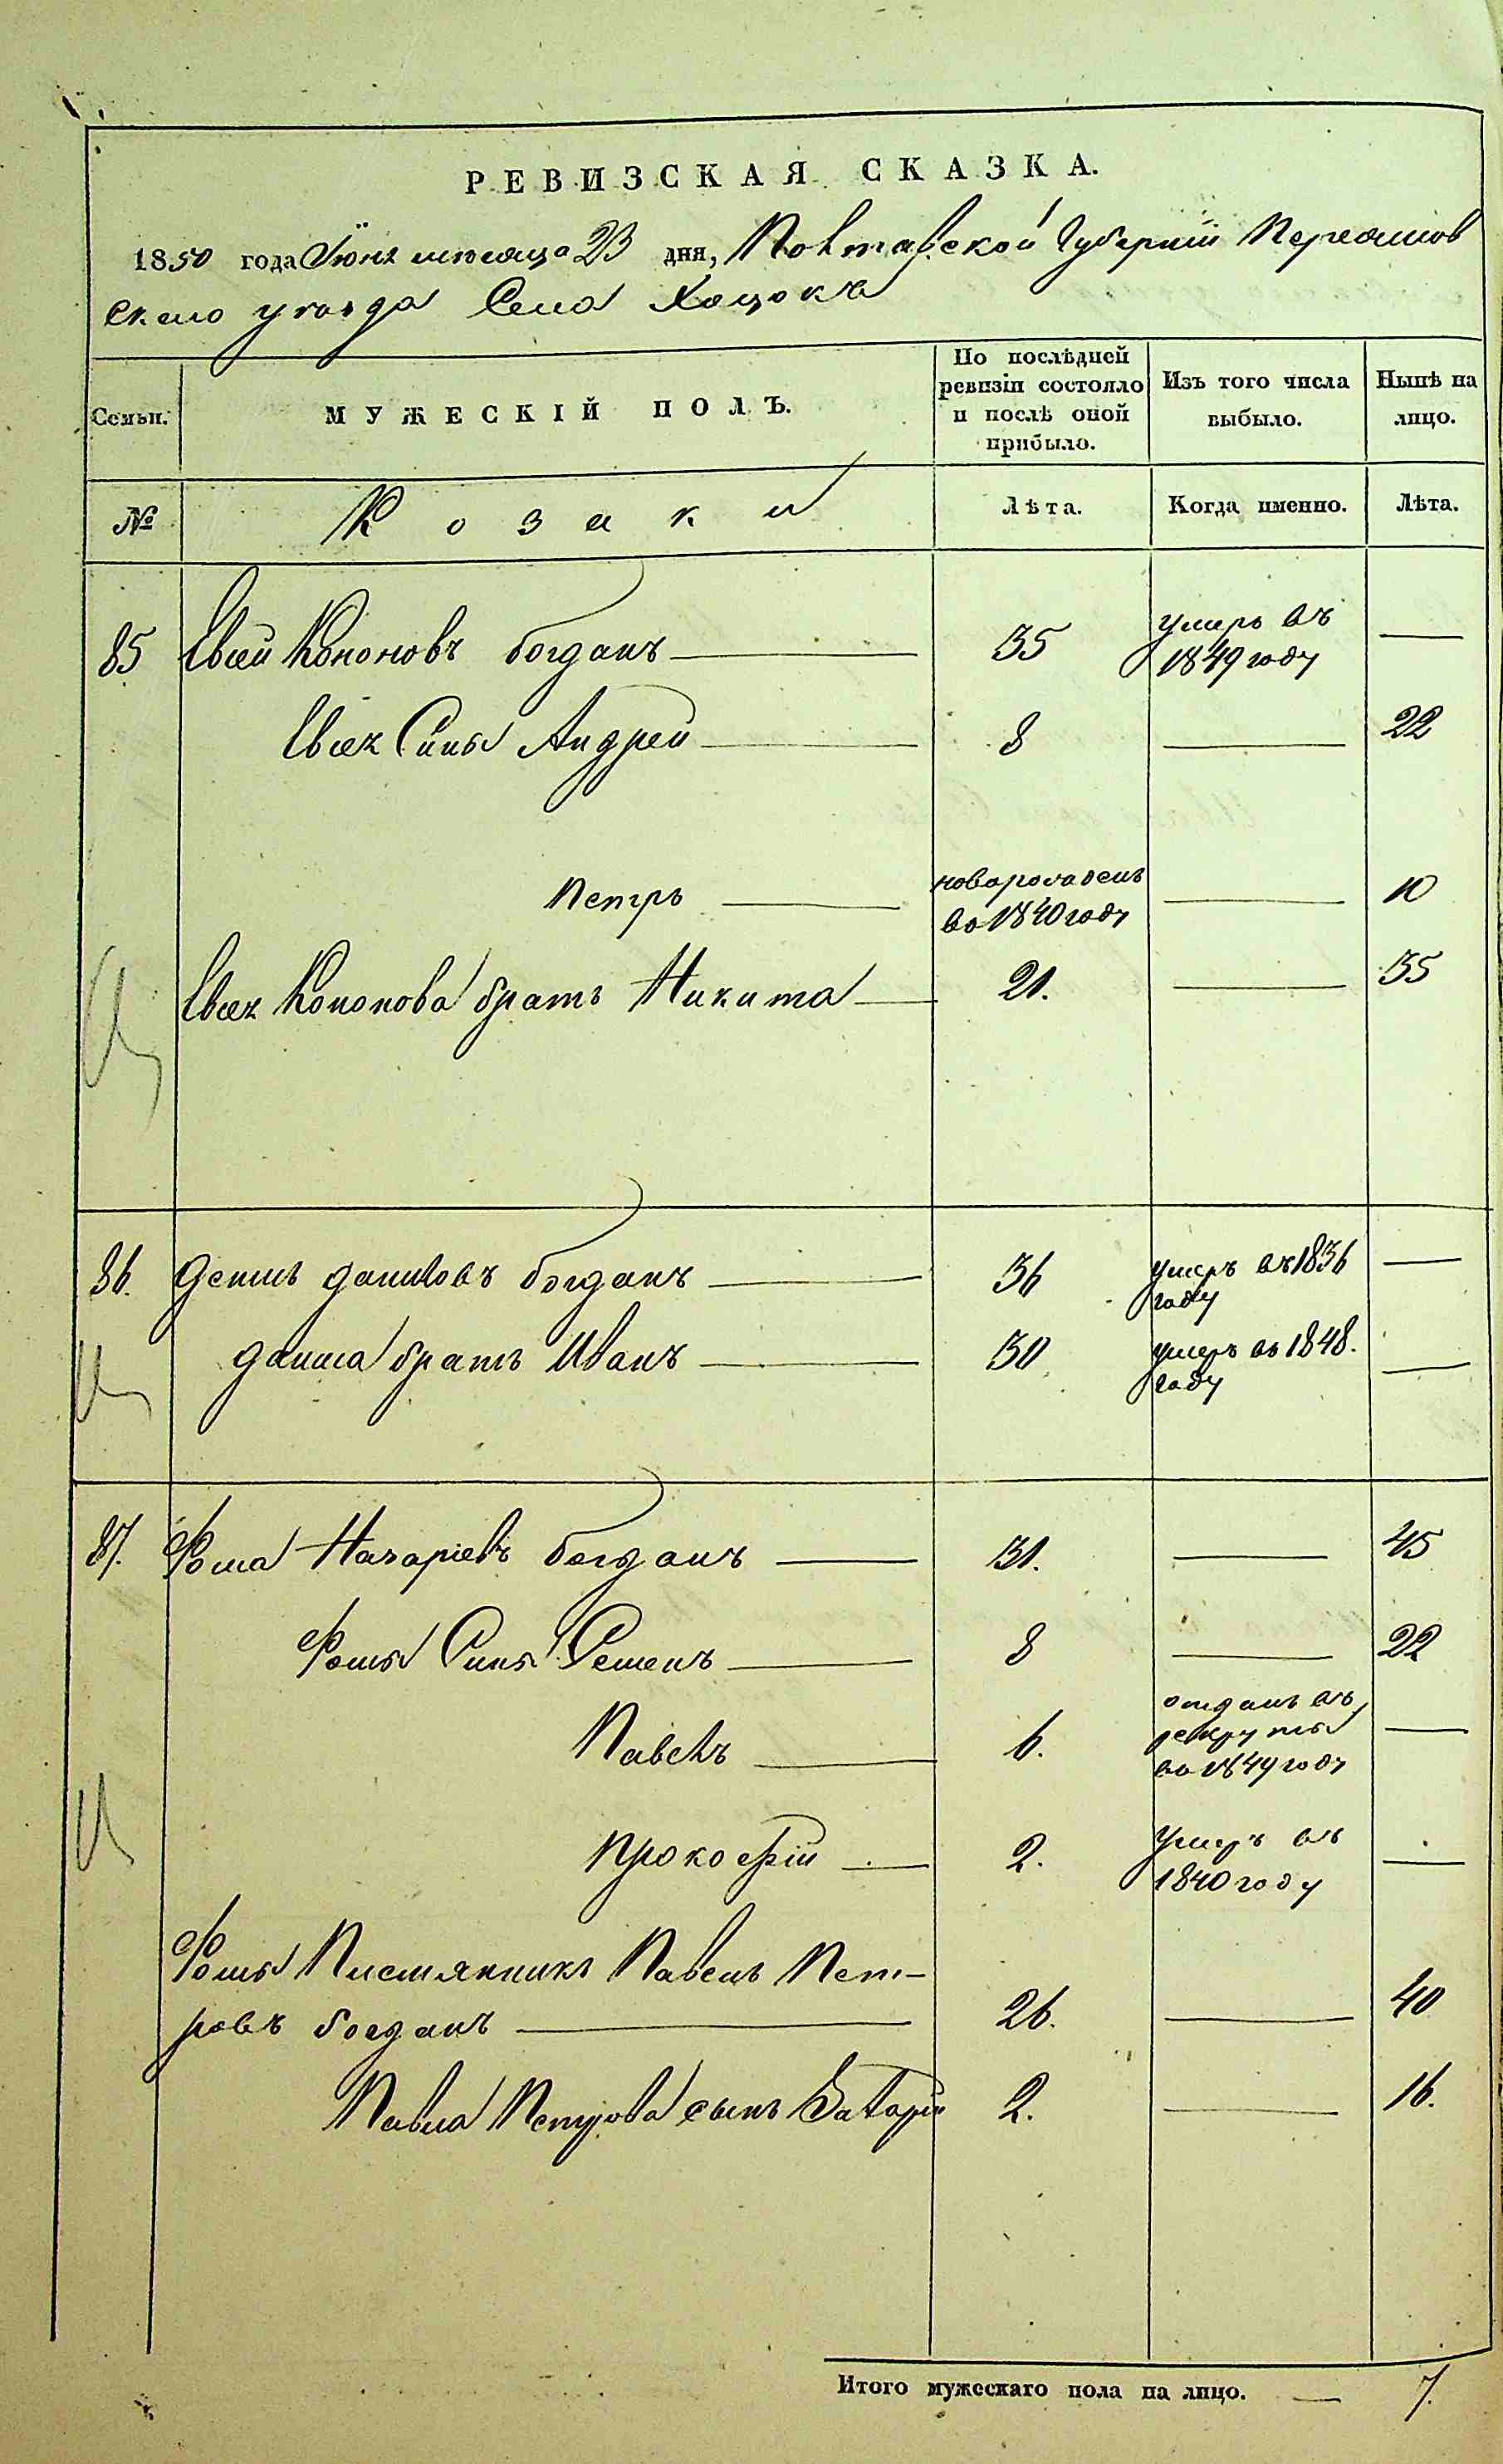 РЕВИЗСКАЯ СКАЗКА.
1850 года Іюня месяца 23 дня, Полтавской Губерніи Переяслов
скаго уезда Села Хоцокъ
Семьи.
МУЖЕСКІЙ ПОЛЪ.
По послѣдней
ревизіи состояло
и послѣ оной
прибыло.
Изъ того числа
выбыло.
Нынѣ на
лицо.
№
Козаки
Лѣта.
Когда именно.
Лѣта.
85 Кононовъ богданъ 35 умеръ въ
1849 году
Сынъ Андрей 8 22
Петръ новорожденъ
во 1840 году 10
Кононова братъ Никита 21. 35
86. Денисъ даниловъ богданъ 36 умеръ въ 1836
году
братъ Иванъ 30 умеръ въ 1848.
году
87. Фома Назаріевъ богданъ 31. 45
Фомы Сынъ Семенъ 8 22
Павелъ 6. отданъ въ
рекруты
во 1849 году
Прокофій 2. умеръ въ
1840 году
Фомы Павелъ Пет-
ровъ богданъ 26. 40
Павла Петрова сынъ Захарій 2. 16.
Итого мужескаго пола на лицо. 7.